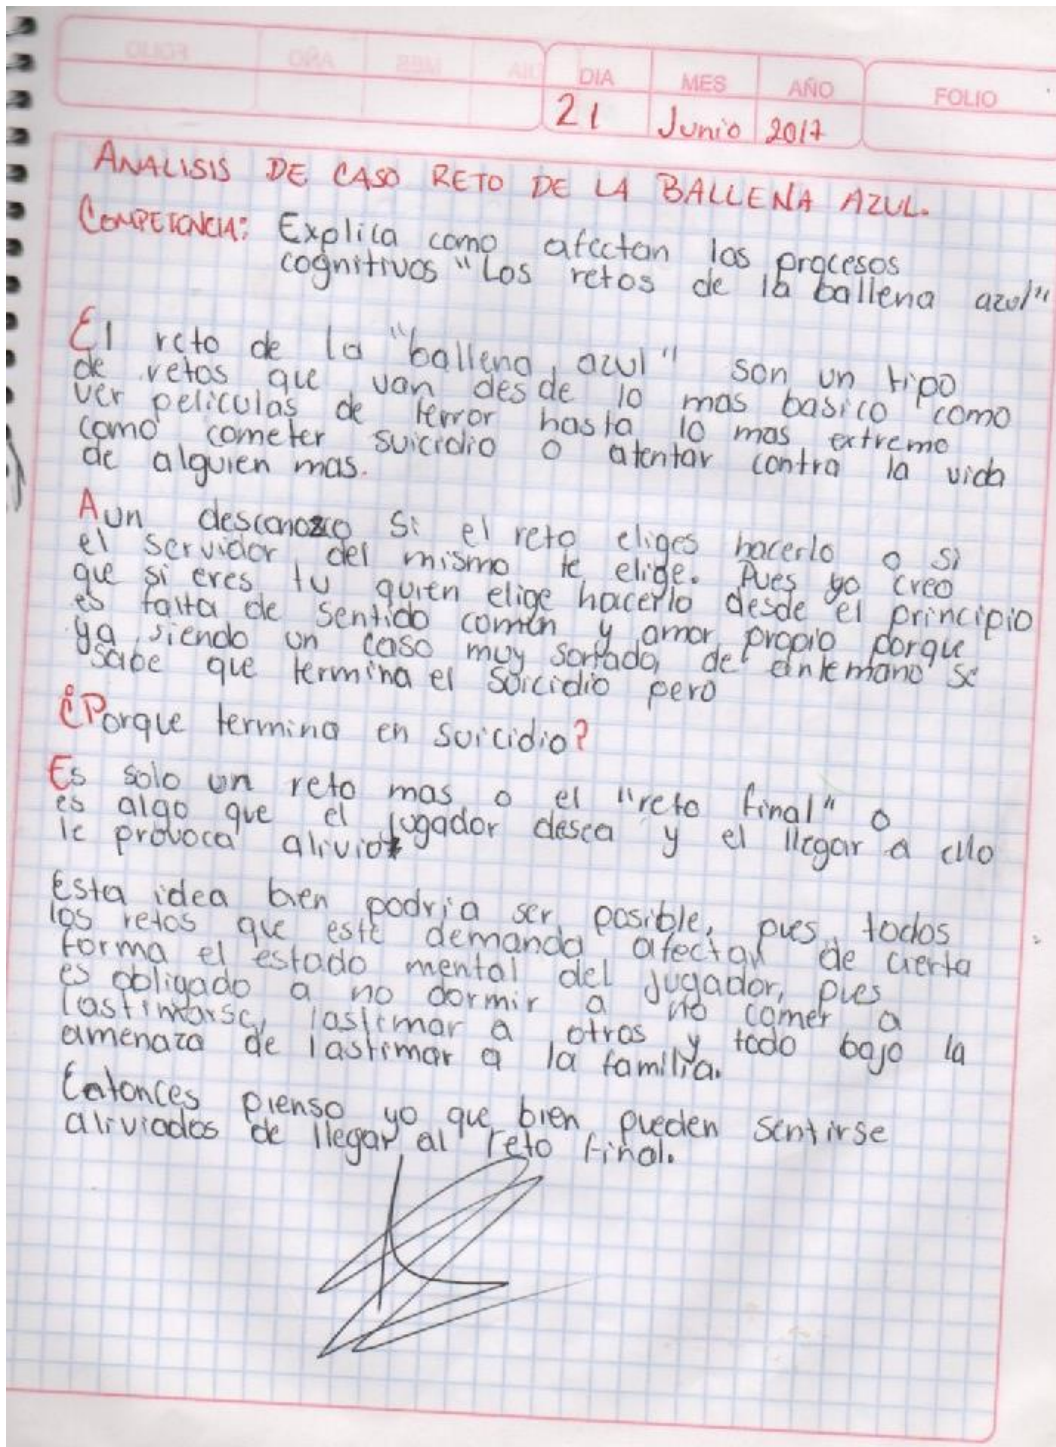 DIA MES AÑO FOLIO
21 Junio 2017
ANALISIS DE CASO RETO DE LA BALLENA AZUL.
COMPETENCIA: Explica como afectan los procesos
cognitivos "Los retos de la ballena azul"
El reto de la "ballena azul" son un tipo
de retos que van desde lo mas basico como
ver peliculas de terror hasta lo mas extremo
como cometer suicidio o atentar contra la vida
de alguien mas.
Aun desconozco si el reto eliges hacerlo o si
el servidor del mismo te elige. Pues yo creo
que si eres tu quien elige hacerlo desde el principio
es falta de sentido común y amor propio porque
ya siendo un caso muy sonado, de antemano se
sabe que termina el soicidio pero
¿Porque termina en suicidio?
Es solo un reto mas o el "reto final" o
es algo que el jugador desea y el llegar a ello
le provoca alivio
Esta idea bien podria ser posible, pues todos
los retos que este demanda afectan de cierta
forma el estado mental del jugador, pues
es obligado a no dormir a no comer a
lastimarse, lastimar a otros y todo bajo la
amenaza de lastimar a la familia.
Entonces pienso yo que bien pueden sentirse
aliviados de llegar al reto final.